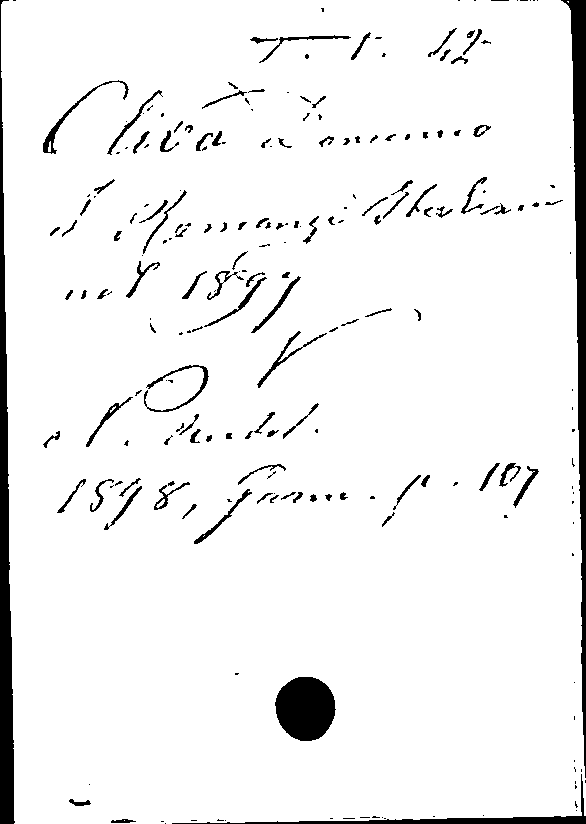 T. V. 42
Oliva Domenico
I Romanzi Italiani
nel 1897
V
1898, Genn. p. 107